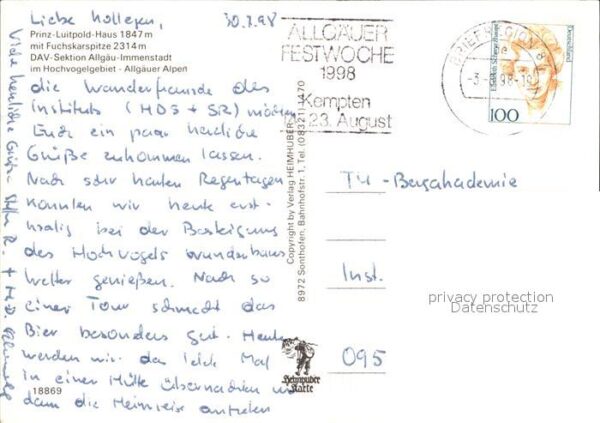 Liebe Kollegen, 30.7.98
Prinz-Luitpold-Haus 1847 m
mit Fuchskarspitze 2314 m
DAV-Sektion Allgäu-Immenstadt
im Hochvogelgebiet - Allgäuer Alpen
die Wanderfreunde des
Instituts (HDS + SR) möchten
Euch ein paar herzliche
Grüße zukommen lassen.
Nach sehr harten Regentagen
konnten wir heute erst-
malig bei der Besteigung
des Hochvogels wunderbares
Wetter genießen. Nach so
einer Tour schmeckt das
Bier besonders gut. Heute
werden wir das letzte Mal
in einer Hütte übernachten und
dann die Heimreise antreten
18869
Viele herzliche Grüße
Copyright by Verlag HEIMHUBER
8972 Sonthofen, Bahnhofstr. 1, Tel. (08321) 3470
Heimhuber
Karte
ALLGÄUER
FESTWOCHE
1998
Kempten
23. August
BRIEFREGION 8
-3.-8.98-19
Deutschland
100
TU-Bergakademie
Inst.
095
privacy protection
Datenschutz